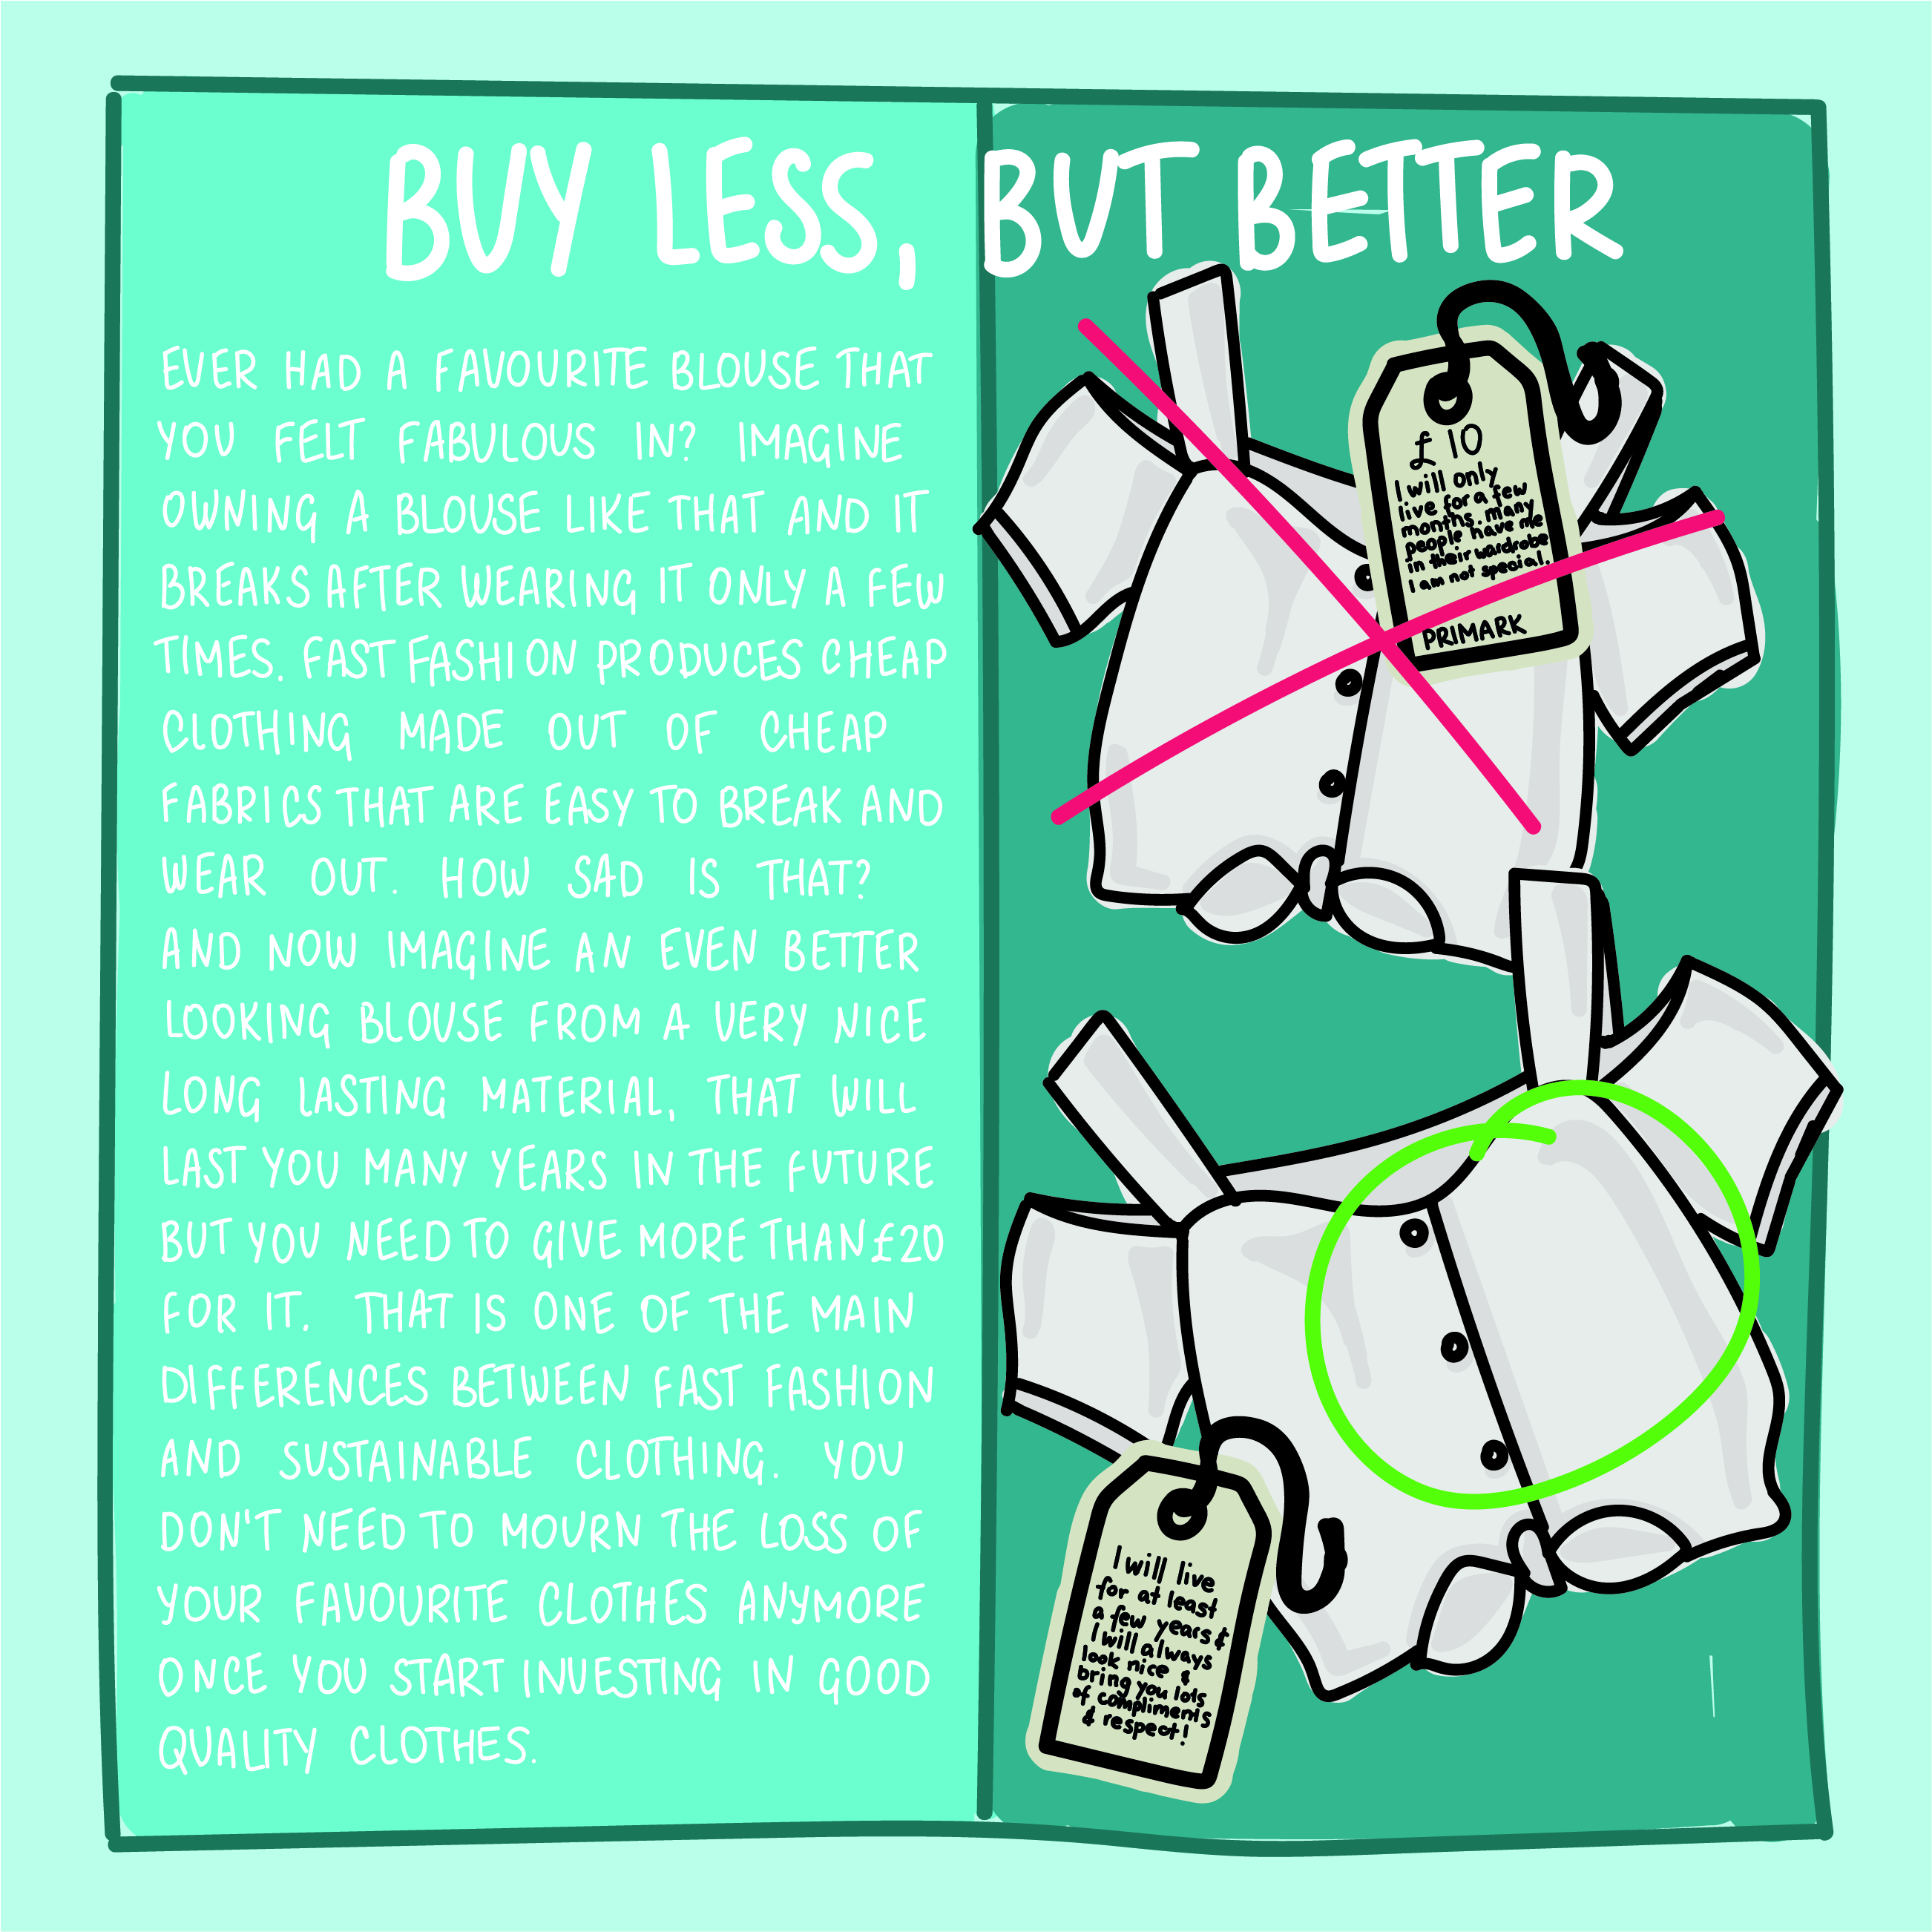 BUY LESS, BUT BETTER
EVER HAD A FAVOURITE BLOUSE THAT
YOU FELT FABULOUS IN? IMAGINE
OWNING A BLOUSE LIKE THAT AND IT
BREAKS AFTER WEARING IT ONLY A FEW
TIMES. FAST FASHION PRODUCES CHEAP
CLOTHING MADE OUT OF CHEAP
FABRICS THAT ARE EASY TO BREAK AND
WEAR OUT. HOW SAD IS THAT?
AND NOW IMAGINE AN EVEN BETTER
LOOKING BLOUSE FROM A VERY NICE
LONG LASTING MATERIAL, THAT WILL
LAST YOU MANY YEARS IN THE FUTURE
BUT YOU NEED TO GIVE MORE THAN £20
FOR IT. THAT IS ONE OF THE MAIN
DIFFERENCES BETWEEN FAST FASHION
AND SUSTAINABLE CLOTHING. YOU
DON'T NEED TO MOURN THE LOSS OF
YOUR FAVOURITE CLOTHES ANYMORE
ONCE YOU START INVESTING IN GOOD
QUALITY CLOTHES.
£10
I will only
live for a few
months. many
people have me
in their wardrobe
I am not special.
PRIMARK
I will live
for at least
a few years &
I will always
look nice &
bring you lots
of compliments
& respect!